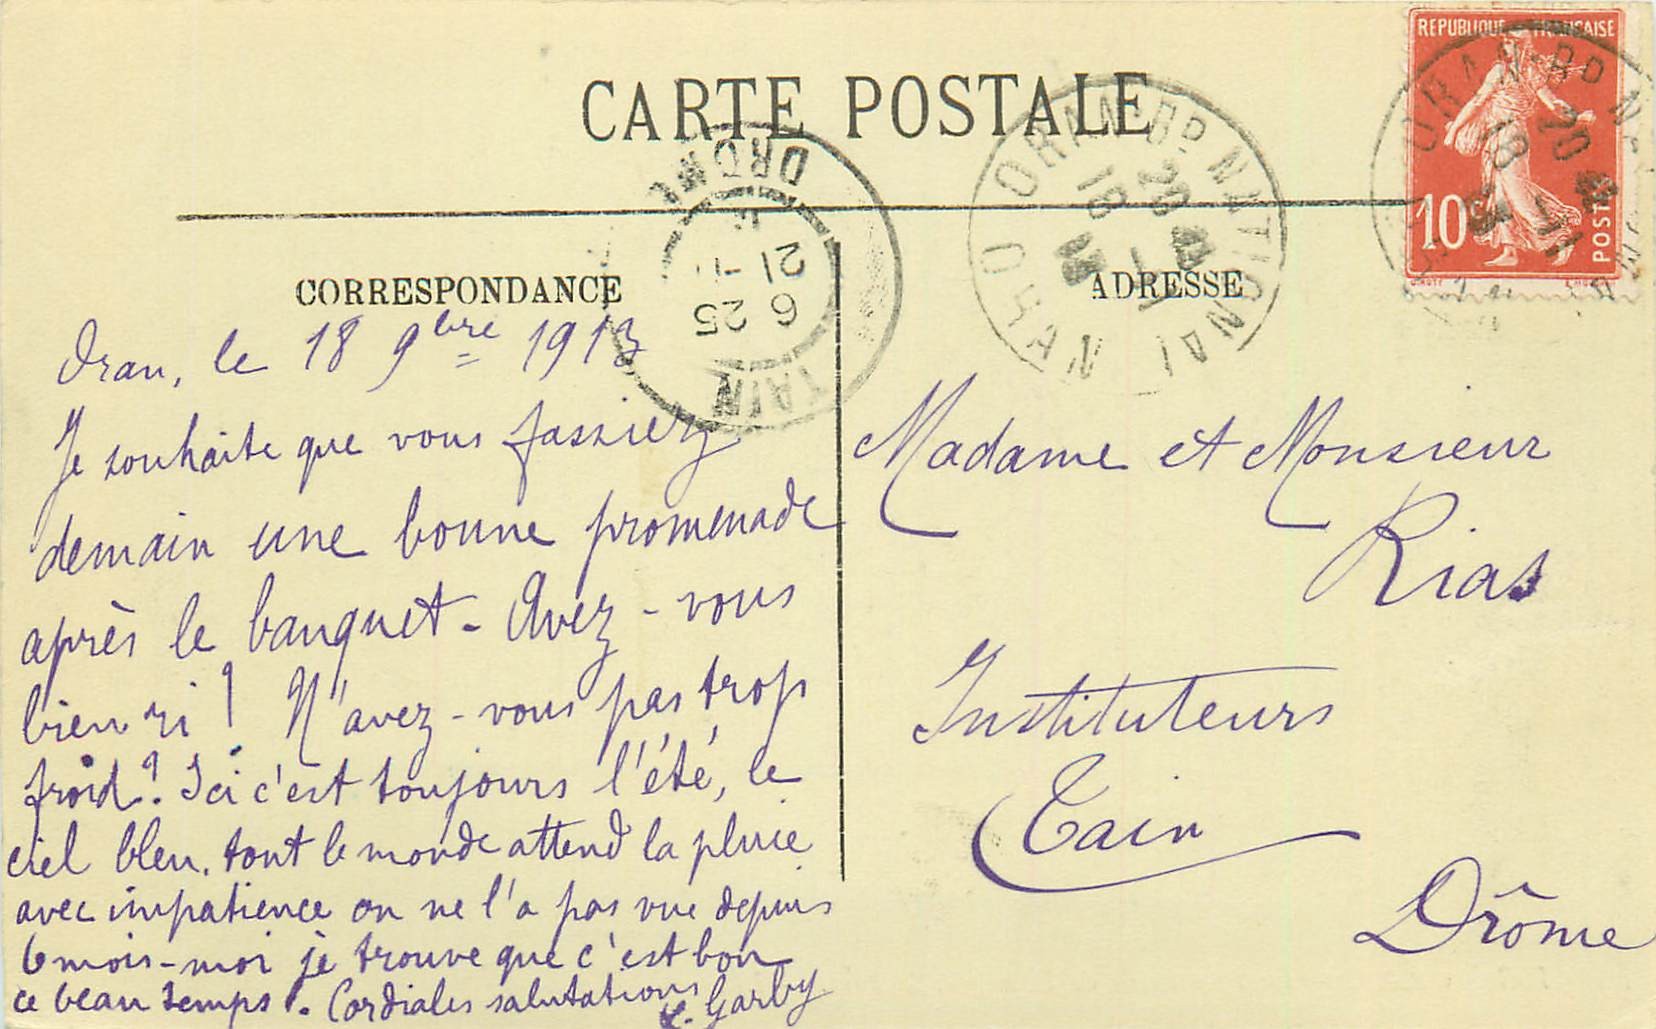 CARTE POSTALE
CORRESPONDANCE
Oran, le 18 9bre 1913
Je souhaite que vous fassiez
demain une bonne promenade
après le banquet - Avez-vous
bien ri ! N'avez-vous pas trop
froid ? Ici c'est toujours l'été, le
ciel bleu. tout le monde attend la pluie
avec impatience on ne l'a pas vue depuis
6 mois - moi je trouve que c'est bon
ce beau temps. Cordiales salutations
Garby
ADRESSE
Madame et Monsieur
Rias
Instituteurs
Tain
Drôme
REPUBLIQUE FRANÇAISE
10c
POSTES
ORAN-Rp NATIONAL
ORAN
18
20
TAIN
DROME
6 25
21
ORAN-Rp
18
20